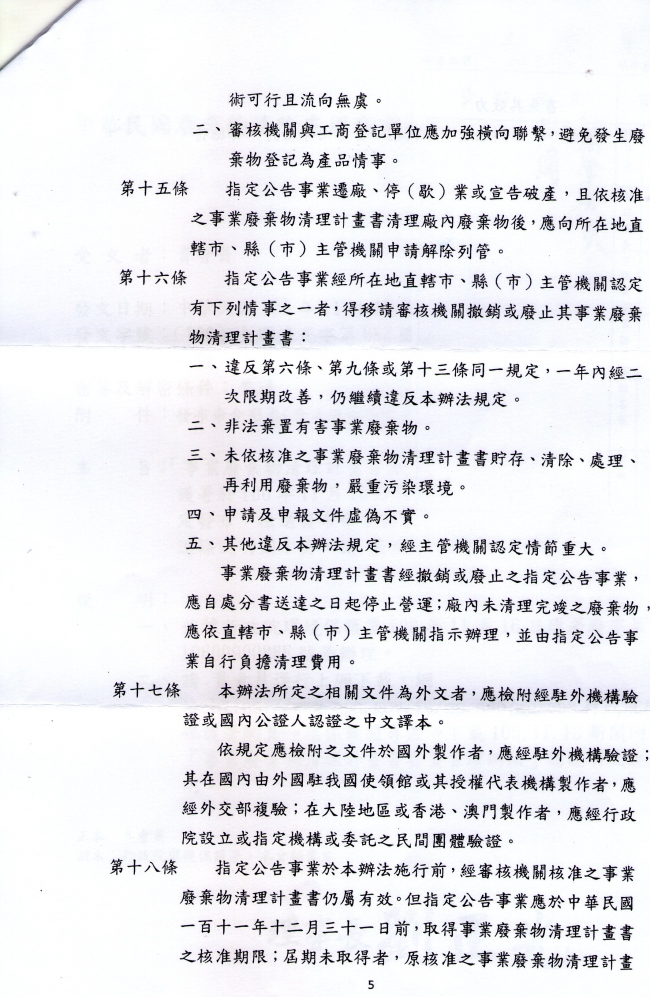 術可行且流向無虞。
二、審核機關與工商登記單位應加強橫向聯繫，避免發生廢
棄物登記為產品情事。
第十五條　指定公告事業遷廠、停（歇）業或宣告破產，且依核准
之事業廢棄物清理計畫書清理廠內廢棄物後，應向所在地直
轄市、縣（市）主管機關申請解除列管。
第十六條　指定公告事業經所在地直轄市、縣（市）主管機關認定
有下列情事之一者，得移請審核機關撤銷或廢止其事業廢棄
物清理計畫書：
一、違反第六條、第九條或第十三條同一規定，一年內經二
次限期改善，仍繼續違反本辦法規定。
二、非法棄置有害事業廢棄物。
三、未依核准之事業廢棄物清理計畫書貯存、清除、處理、
再利用廢棄物，嚴重污染環境。
四、申請及申報文件虛偽不實。
五、其他違反本辦法規定，經主管機關認定情節重大。
事業廢棄物清理計畫書經撤銷或廢止之指定公告事業，
應自處分書送達之日起停止營運；廠內未清理完竣之廢棄物，
應依直轄市、縣（市）主管機關指示辦理，並由指定公告事
業自行負擔清理費用。
第十七條　本辦法所定之相關文件為外文者，應檢附經駐外機構驗
證或國內公證人認證之中文譯本。
依規定應檢附之文件於國外製作者，應經駐外機構驗證；
其在國內由外國駐我國使領館或其授權代表機構製作者，應
經外交部複驗；在大陸地區或香港、澳門製作者，應經行政
院設立或指定機構或委託之民間團體驗證。
第十八條　指定公告事業於本辦法施行前，經審核機關核准之事業
廢棄物清理計畫書仍屬有效。但指定公告事業應於中華民國
一百十一年十二月三十一日前，取得事業廢棄物清理計畫書
之核准期限；屆期未取得者，原核准之事業廢棄物清理計畫
5